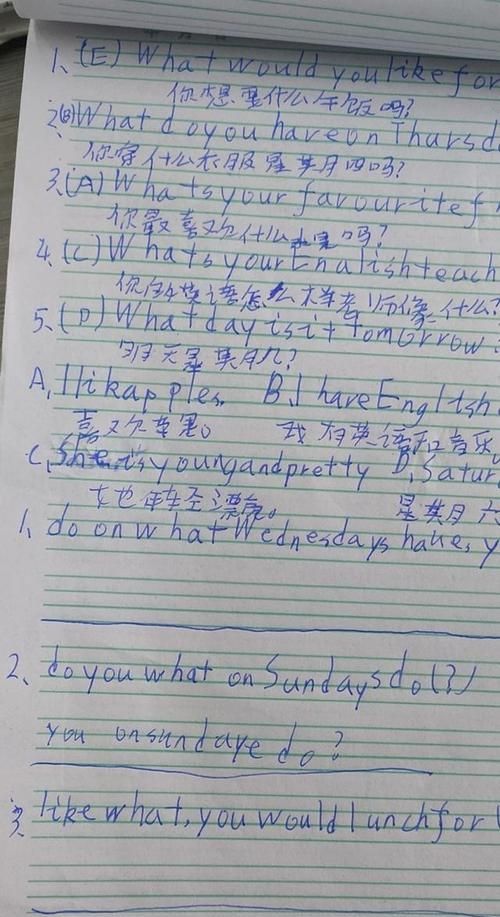 1、(E) What would you like for
你想要什么午饭吗?
2、(B) What do you have on Thursd
你穿什么衣服星其月四吗?
3、(A) Whats your favourite f
你最喜欢什么水果吗?
4、(C) Whats your Enalish teach
你的英语怎么样老师像什么?
5、(D) What day is it tomorrow
明天星其月几?
A、I likapples. B.I have English
喜欢苹果。 我有英语和音乐。
C、She is young and pretty D、Satur
她年轻漂亮。 星其月六
1、do on what Wednesdays have, y
2、do you what on Sundays do (?)
you onsundaye do?
3、like what, you would lunch for